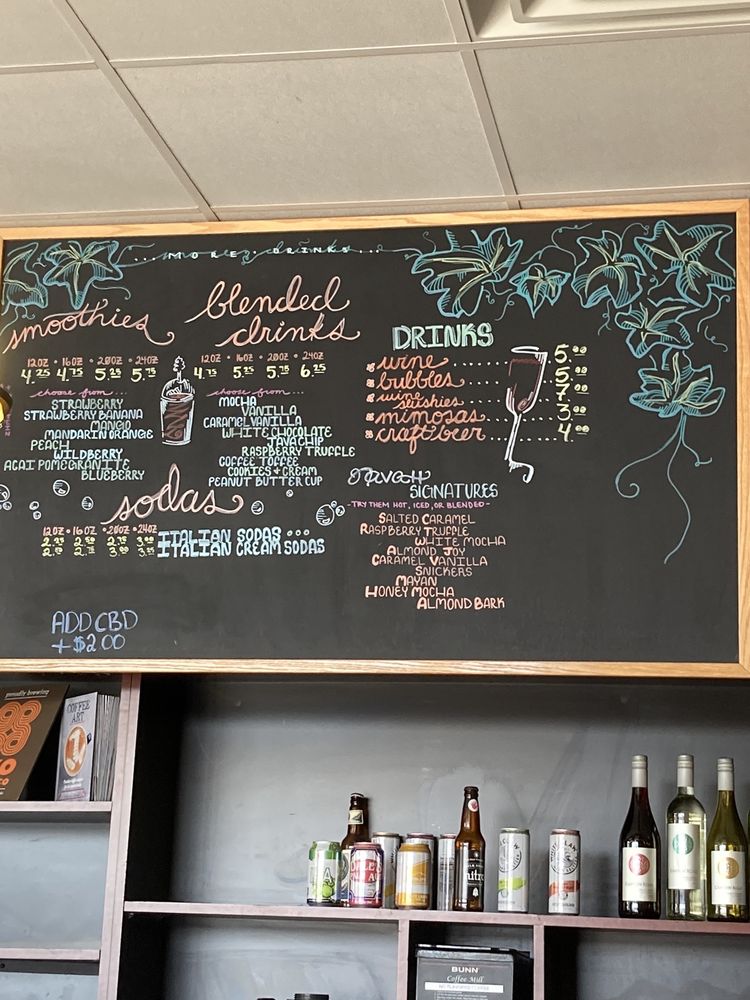 ... MORE · DRINKS ...
smoothies
12OZ • 16OZ • 20OZ • 24OZ
4.25 4.75 5.25 5.75
choose from...
STRAWBERRY
STRAWBERRY BANANA
MANGO
MANDARIN ORANGE
PEACH
WILDBERRY
ACAI POMEGRANITE
BLUEBERRY
blended
drinks
12OZ • 16OZ • 20OZ • 24OZ
4.75 5.25 5.75 6.25
choose from...
MOCHA
VANILLA
CARAMEL VANILLA
WHITE CHOCOLATE
JAVA CHIP
RASPBERRY TRUFFLE
COFFEE TOFFEE
COOKIES + CREAM
PEANUT BUTTER CUP
DRINKS
wine 5.00
bubbles 5.00
wine slushies 7.00
mimosas 3.00
craft beer 4.00
sodas
12OZ • 16OZ • 20OZ • 24OZ
2.75 3.00 ITALIAN SODAS ...
2.75 3.00 3.25 ITALIAN CREAM SODAS
SIGNATURES
- TRY THEM HOT, ICED, OR BLENDED -
SALTED CARAMEL
RASPBERRY TRUFFLE
WHITE MOCHA
ALMOND JOY
CARAMEL VANILLA
SNICKERS
MAYAN
HONEY MOCHA
ALMOND BARK
ADD CBD
+ $2.00
proudly brewing
COFFEE
ART
BUNN
Coffee Mill